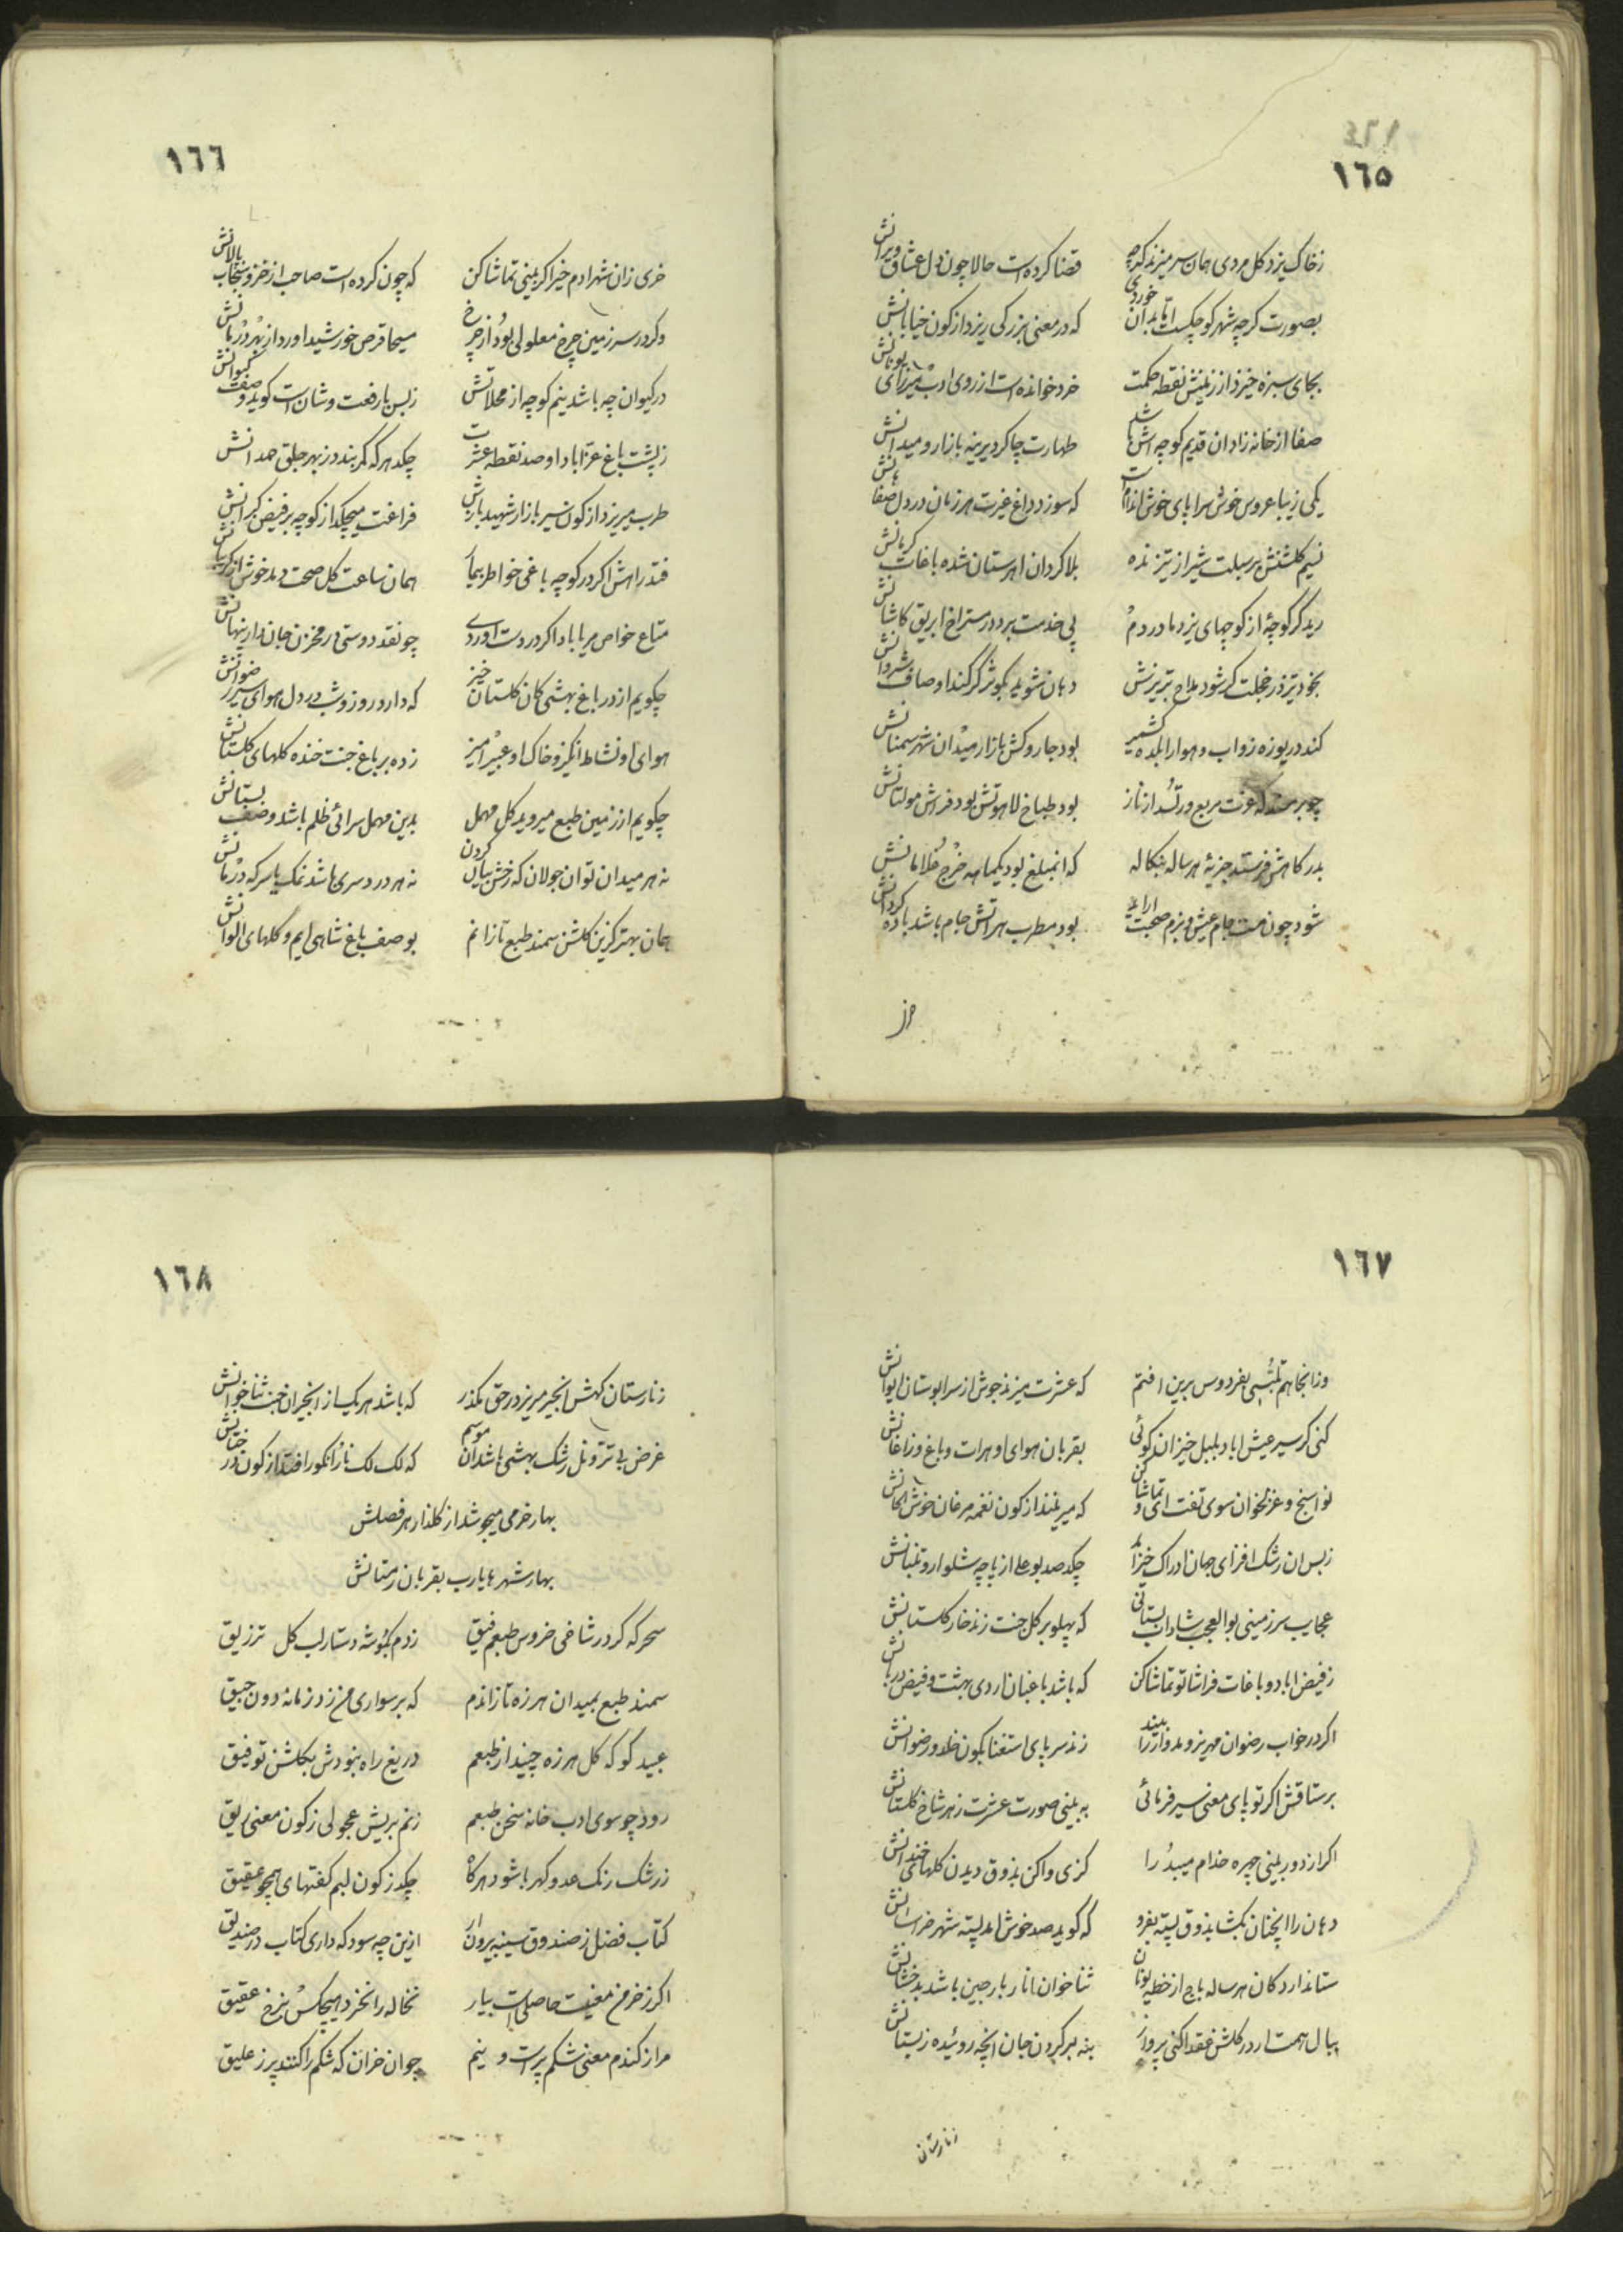 ١٦٥
ز خاک یزد گل مردی همان سر میزند گرچه
قضا کرده است حالا چون دل عشاق ویرانش
بصورت گرچه شهر کوچکیست اما بدان خوردی
که در معنی بزرگی ریزد از کون خیابانش
بجای سبزه خیزد از زمینش نقطه حکمت
خرد خوانده است از روی ادب میرزای یونانش
صفا از خانه زادان قدیم کوچه باشد
طهارت چاکر دیرینه بازار و میدانش
یکی زیبا عروس خوش سراپای خوش اندام است
که سوزد داغ غیرت هر زمان در دل صفاهانش
نسیم گلشنش بر سبلت شیراز تیز نده
بلا گردان اهرستان شده باغات کرمانش
رید گر گوچهٔ از کوچهای یزد ما در دم
پی خدمت برد در مستراح ابریق کاشانش
بخود تیز ز خجلت گر شود مداح تبریزش
دهان شوید بکوثر گر کند اوصاف شروانش
کند دریوزه ز آب و هوا را بلده کشمیر
بود جاروکش بازار میدان شهر سمنانش
بود طباخ لاهوتش بود فراش مولتانش
بدرکاهش فرستد جزیهٔ هر ساله بنکاله
که انمبلغ بود یکماهه خرج غلامانش
شود چون مست جام عیش و بزم صحبت اراید
بود مطرب هراتش جام باشد باده کردانش
١٦٦
خری زان شهر ادم خیز اکر بینی تماشا کن
که چون کرده است صاحب از خز و سنجاب پالانش
وکر در سرزمین چرخ معلولی بود از چرخ
مسیحا قرص خورشید اورد از بهر درمانش
در کیوان چه باشد نیم کوچه از محلاتش
ز بس با رفعت و شان است کوید وصف کیوانش
ز پشت باغ عزاباد او صد نقطه عشرت
چکد هر که کمر بندد ز بهر جلق حمدانش
طرب میریزد از کون سیر بازار شهید بارش
فراغت میچکد از کوچه بر فیض کبرانش
فتد راهش اکر در کوچه باغی خواطر بیمار
همان ساعت کل صحت دمد خوش از کریبانش
متاع خواص مریاباد اکر در دست اوردی
چو نقد دوستی در مخزن جان دار پنهانش
چکویم از در باغ بهشتی کان کلستان خیز
که دارد روز و شب در دل هوای سیر رضوانش
هوای او نشاط انکیز و خاک او عبیر امیز
زده بر باغ جنت خنده کلهای کلستانش
چکویم از زمین طبع میروید کل مهمل
بدین مهمل سرائی ظلم باشد وصف بستانش
نه هر میدان توان جولان که رخش بیان کردن
نه هر دردسری باشد نمک یا سرکه درمانش
همان بهتر کزین کلشن سمند طبع تازانم
بوصف باغ شاهی ایم و کلهای الوانش
١٦٧
وز انجا هم بفردوس برین افتم
که عشرت میزند جوش از سرابوستان ایوانش
کنی کر سیر عیش اباد بلبل خیزان کوئی
بقربان هوای او هرات و باغ و زاغانش
نواسنج و غزلخوان سوی تفت ای و تماشا کن
که میریند از کون نغمه مرغان خوش الحانش
ز بس ان رشک افزای جهان ادراک خیز امد
چکد صد بوعلی از پاچه شلوار و تنبانش
عجایب سرزمینی بوالعجب شاداب بستانی
که پهلو بر کل جنت زند خار کلستانش
ز فیض اباد و باغات فراشا تو تماشا کن
که باشد باغبان اردی بهشت و فیض دربانش
اکر در خواب رضوان مهریز و مدوار را بیند
زند سر پای استغنا بکون خلد و رضوانش
برستاقش اکر تو پای معنی سیر فرمائی
به بینی صورت عشرت ز هر شاخ کلستانش
اکر از دور بینی چهره خدام میبد را
کزی واکن بذوق دیدن کلهای خندانش
دهان را انچنان بکشا بذوق پسته بفرو
که کوید صد خوش امد پسته شهر خراسانش
ستاند اردکان هر ساله باج از خطه یونان
ثناخوان انار بارجین باشد بدخشانش
ببال همت ار در کلشن عقدا کنی پرواز
بنه بر کردن جان انچه روئیده ز بستانش
انارستان
١٦٨
ز نارستان کهش انجیر مریز در حق بکذر
که باشد هر یک از انجیران جنت ثناخوانش
غرض بی تر و نل رشک بهشتی باشد ان موسم
که لک لک نار و انکور افتد از کون درختانش
بهار خرمی میجوشد از کلذار هر فصلش
بهار شهرها یارب بقربان زمستانش
سحر که کرد در شاخی خروس طبعم فیق
زدم بکوشه دستار لب کل تزریق
سمند طبع بمیدان هرزه تازاندم
که بر سواری من زد زمانه دون جیق
عبید کو که کل هرزه چیند از طبعم
دریغ راه نبودش بکلشن توفیق
رود چو سوی ادب خانه سخن طبعم
زنم بریش عجولی ز کون معنی ریق
ز رشک رنک عدو کهربا شود هر کاه
چکد ز کون لبم کفتهای همچو عقیق
کتاب فضل ز صندوق سینه بیرون ار
ازین چه سود که داری کتاب در صندیق
اکر ز خرمن معنیت حاصلی است بیار
نخاله را نخرد هیچکس بنرخ عقیق
مرا ز کندم معنی شکم پر است و نیم
چو ان خران که شکم را کنند پر ز علیق